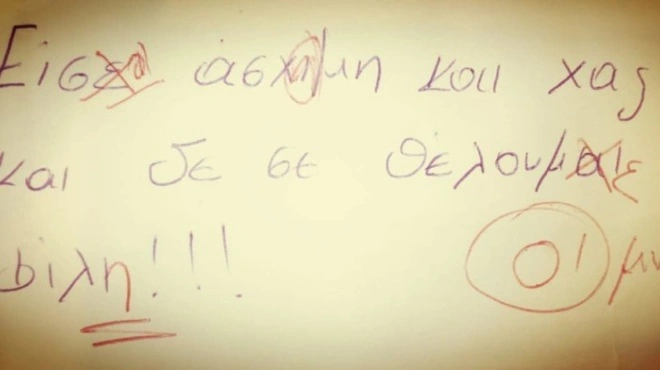 Είσε άσχημη και χας
και δε σε θέλουμαι ε
φίλη!!! 0!